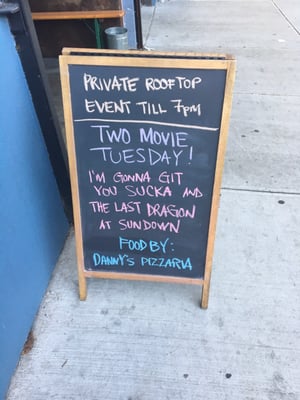 PRIVATE ROOFTOP
EVENT TILL 7PM
TWO MOVIE
TUESDAY!
I'M GONNA GIT
YOU SUCKA AND
THE LAST DRAGON
AT SUNDOWN
FOOD BY:
DANNY'S PIZZARIA